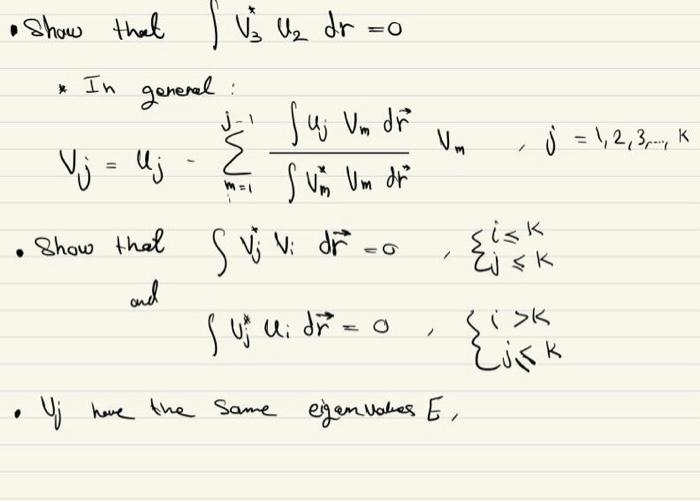 • Show that ∫ V₃* U₂ dr = 0
* In general :
Vj = uj - Σ_{m=1}^{j-1} (∫ uj Vm dr⃗ / ∫ Vm* Vm dr⃗) Vm , j = 1,2,3,..., K
• Show that ∫ Vj* Vi dr⃗ = 0 , { i ≤ K
{ j ≤ K
and
∫ Vj* Ui dr⃗ = 0 , { i > K
{ j ≤ K
• Vj have the same eigenvalues E,